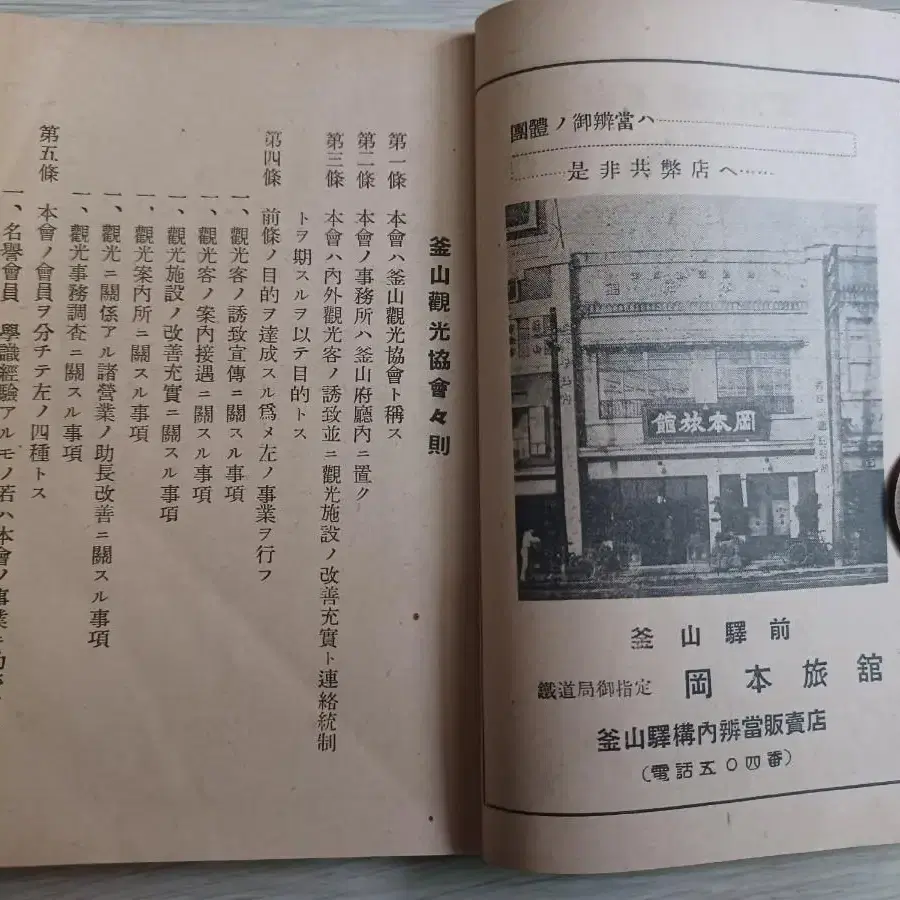 團體ノ御辨當ハ
是非共弊店ヘ
岡本旅館
釜山驛前
鐵道局御指定 岡本旅舘
釜山驛構內辨當販賣店
(電話五〇四番)
釜山觀光協會々則
第一條 本會ハ釜山觀光協會ト稱ス
第二條 本會ノ事務所ハ釜山府廳內ニ置ク
第三條 本會ハ內外觀光客ノ誘致並ニ觀光施設ノ改善充實ト連絡統制
トヲ期スルヲ以テ目的トス
第四條 前條ノ目的ヲ達成スル爲メ左ノ事業ヲ行フ
一、觀光客ノ誘致宣傳ニ關スル事項
一、觀光客ノ案內接遇ニ關スル事項
一、觀光施設ノ改善充實ニ關スル事項
一、觀光案內所ニ關スル事項
一、觀光ニ關係アル諸營業ノ助長改善ニ關スル事項
一、觀光事務調查ニ關スル事項
第五條 本會ノ會員ヲ分チテ左ノ四種トス
一、名譽會員 學識經驗アルモノ若ハ本會ノ事業